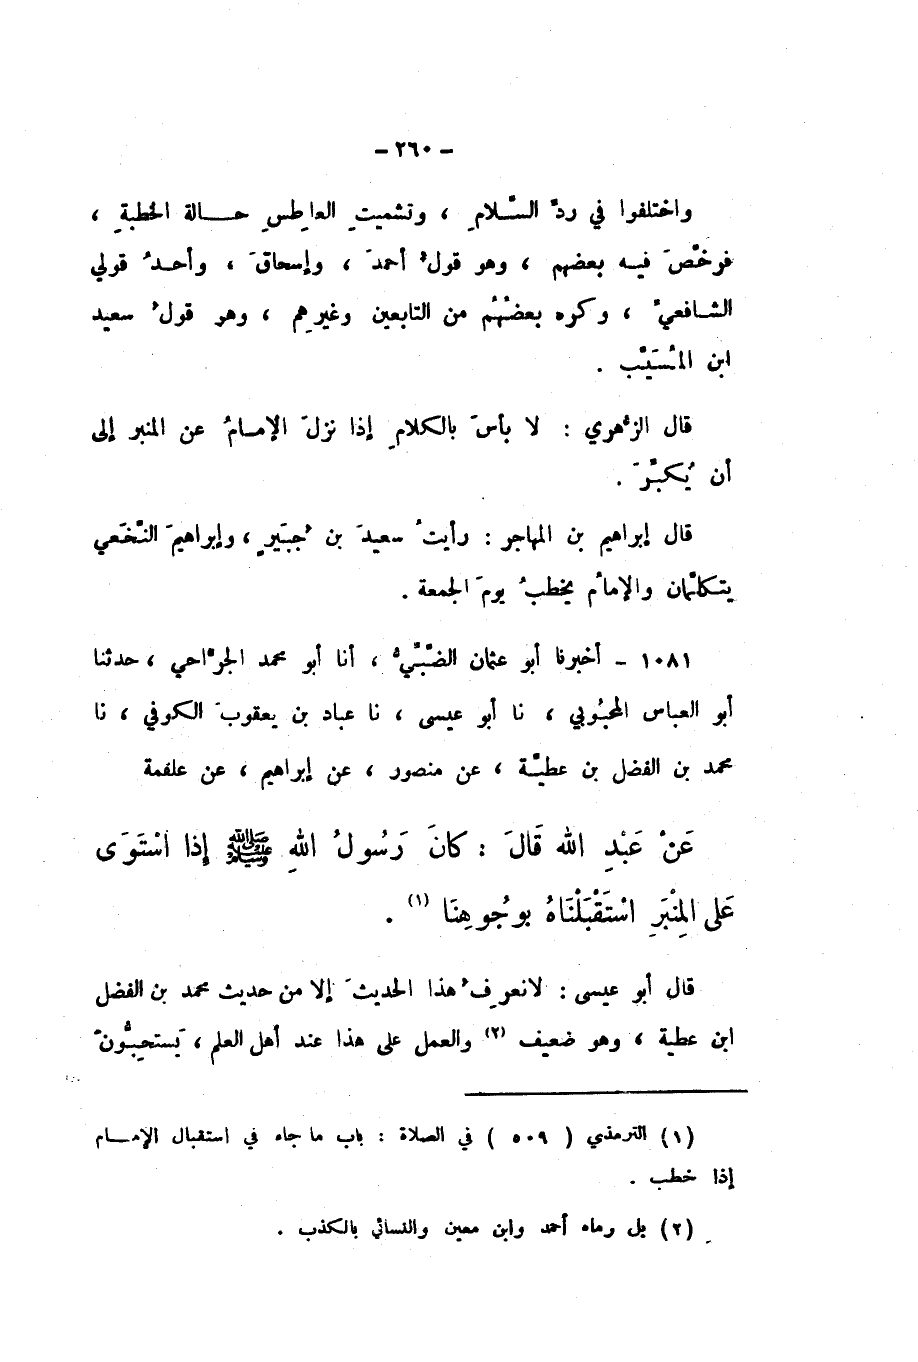 - ٢٦٠ -
واختلفوا في ردِّ السَّلامِ ، وتشميتِ العاطِسِ حالة الخطبةِ ،
فرخَّصَ فيه بعضهم ، وهو قولُ أحمدَ ، وإسحاقَ ، وأحدُ قولي
الشافعيِّ ، وكره بعضُهُم من التابعين وغيرِهم ، وهو قولُ سعيد
ابن المُسَيَّب .
قال الزُّهري : لا بأسَ بالكلامِ إذا نزلَ الإمامُ عن المنبر إلى
أن يُكبِّرَ .
قال إبراهيم بن المهاجر : رأيتُ سعيدَ بن جُبَيرٍ ، وإبراهيمَ النَّخَعي
يتكلَّمان والإمامُ يخطبُ يومَ الجمعة .
١٠٨١ - أخبرنا أبو عثمان الضَّبِّيُّ ، أنا أبو محمد الجرَّاحي ، حدثنا
أبو العباس المحبُوبي ، نا أبو عيسى ، نا عباد بن يعقوبَ الكوفي ، نا
محمد بن الفضل بن عطيَّة ، عن منصور ، عن إبراهيم ، عن علقمة
عَنْ عَبْدِ الله قَالَ : كانَ رَسُولُ اللهِ ﷺ إذا اسْتَوَى
عَلى المِنْبَرِ اسْتَقْبَلْنَاهُ بوجُوهِنَا (١) .
قال أبو عيسى : لانعرِفُ هذا الحديثَ إلا من حديث محمد بن الفضل
ابن عطية ، وهو ضعيف (٢) والعمل على هذا عند أهل العلم ، يَستحِبُّونَ
(١) الترمذي ( ٥٠٩ ) في الصلاة : باب ما جاء في استقبال الإمام
إذا خطب .
(٢) بل رماه أحمد وابن معين والنسائي بالكذب .